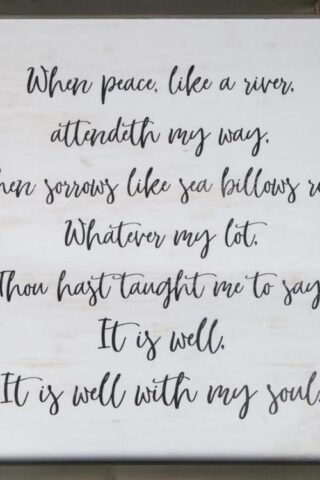 When peace, like a river,
attendeth my way,
hen sorrows like sea billows ro
Whatever my lot,
Thou hast taught me to say
It is well,
It is well with my soul.